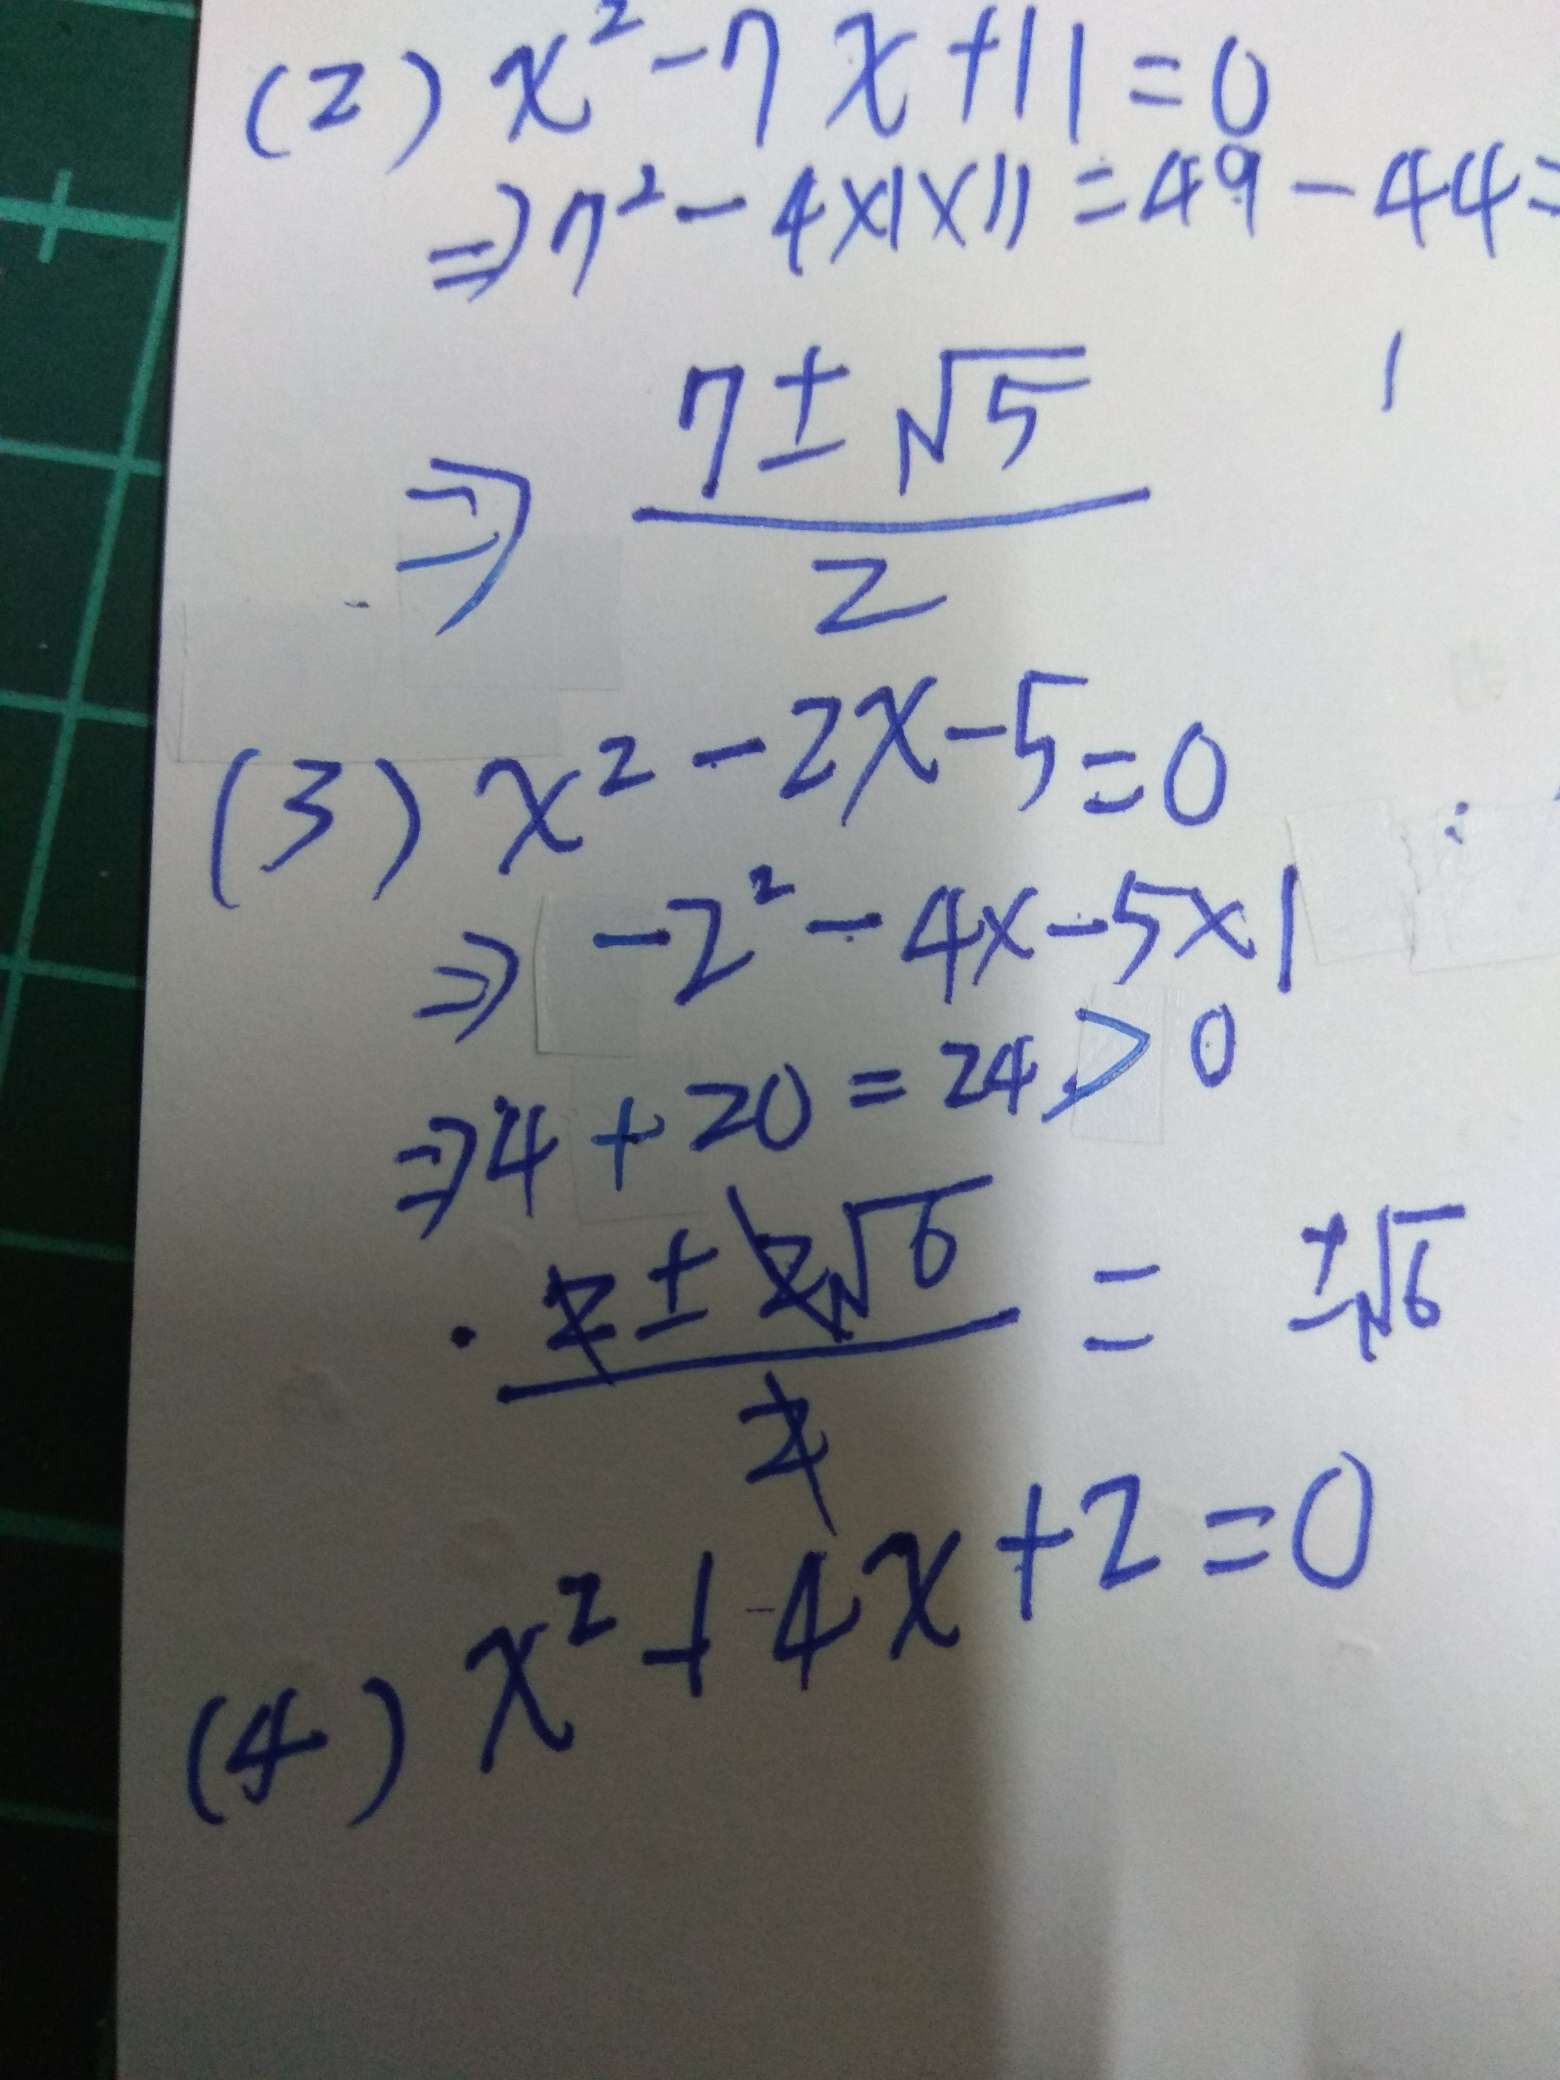 (2) x² - 7x + 11 = 0
⇒ 7² - 4×1×11 = 49 - 44 =
⇒ (7 ± √5) / 2
(3) x² - 2x - 5 = 0
⇒ -2² - 4x - 5×1
⇒ 4 + 20 = 24 > 0
· (2 ± 2√6) / 2 = ±√6
(4) x² + 4x + 2 = 0